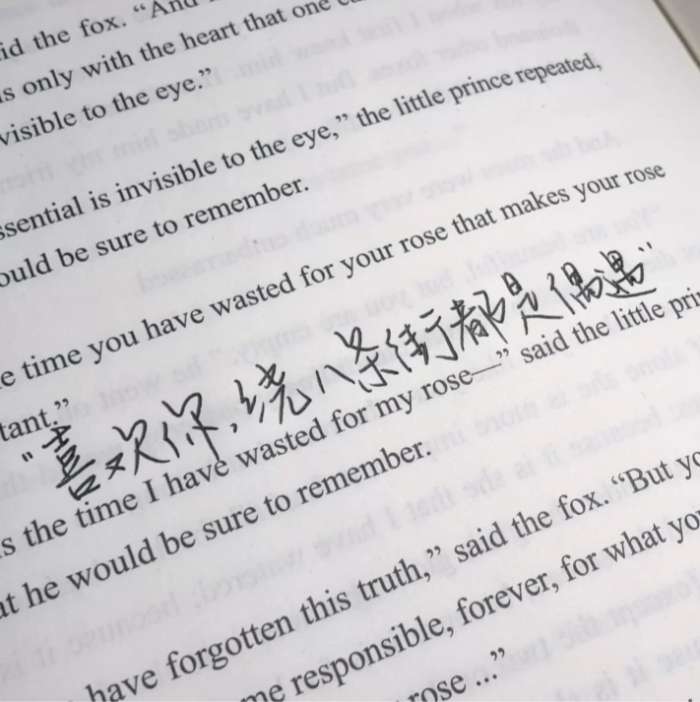 id the fox. "And
is only with the heart that one
visible to the eye."
ssential is invisible to the eye," the little prince repeated,
ould be sure to remember.
e time you have wasted for your rose that makes your rose
tant."
"喜欢你,绕八条街都是偶遇"
is the time I have wasted for my rose—" said the little pri
at he would be sure to remember.
have forgotten this truth," said the fox. "But yo
me responsible, forever, for what you
rose ..."